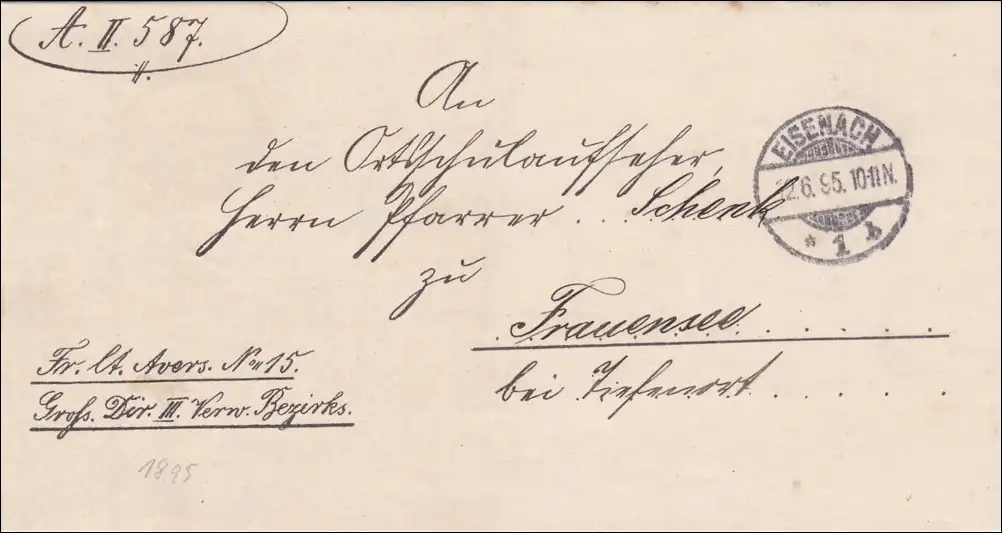 A. II. 587.
An
den Ortsschulaufseher,
Herrn Pfarrer . . Schenk
zu
. Frauensee . . . . . .
bei Tiefenort . . . . . .
EISENACH
12.6.95.10-11N.
* 1 b
Fr. lt. Avers. No 15.
Gross. Dir. III. Verw. Bezirks.
1895